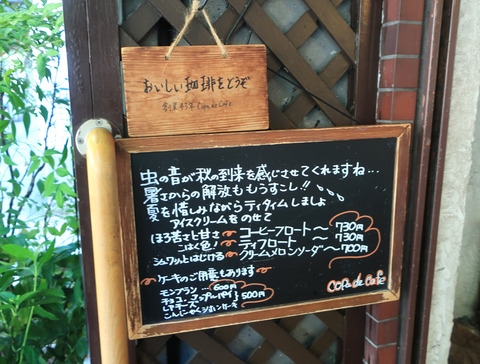 おいしい珈琲をどうぞ
Copa de Cafe
虫の音が秋の到来を感じさせてくれますね…
暑さからの解放ももうすこし!!
夏を惜しみながらティタイムしましょ
アイスクリームをのせて
ほろ苦さと甘さ コーヒーフロート〜 730円
こはく色! ティフロート 730円
シュワッとはじける クリームメロンソーダ〜 700円
ケーキのご用意もあります
モンブラン… 600円
チョコ・アップルパイ
レアチーズ 500円
Copa de Cafe